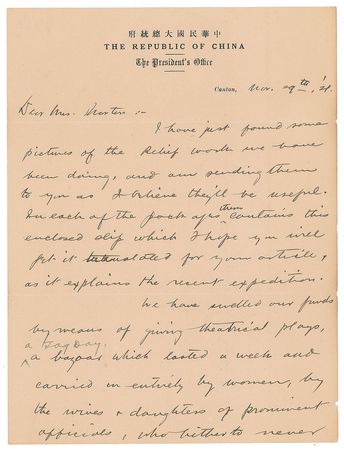 府統總大國民華中
THE REPUBLIC OF CHINA
The President's Office
Canton, Nov. 29th, '21.
Dear Mrs. :-
I have just found some
pictures of the Relief work we have
been doing, and am sending them
to you as I believe they'll be useful.
In each of the package, them contains this
enclosed slip which I hope you will
get it translated for your article,
as it explains the recent expedition.
We have swelled our funds
by means of giving theatrical plays,
a Tag Day,
a bazaar which lasted a week and
carried on entirely by women, by
the wives & daughters of prominent
officials, who hitherto never